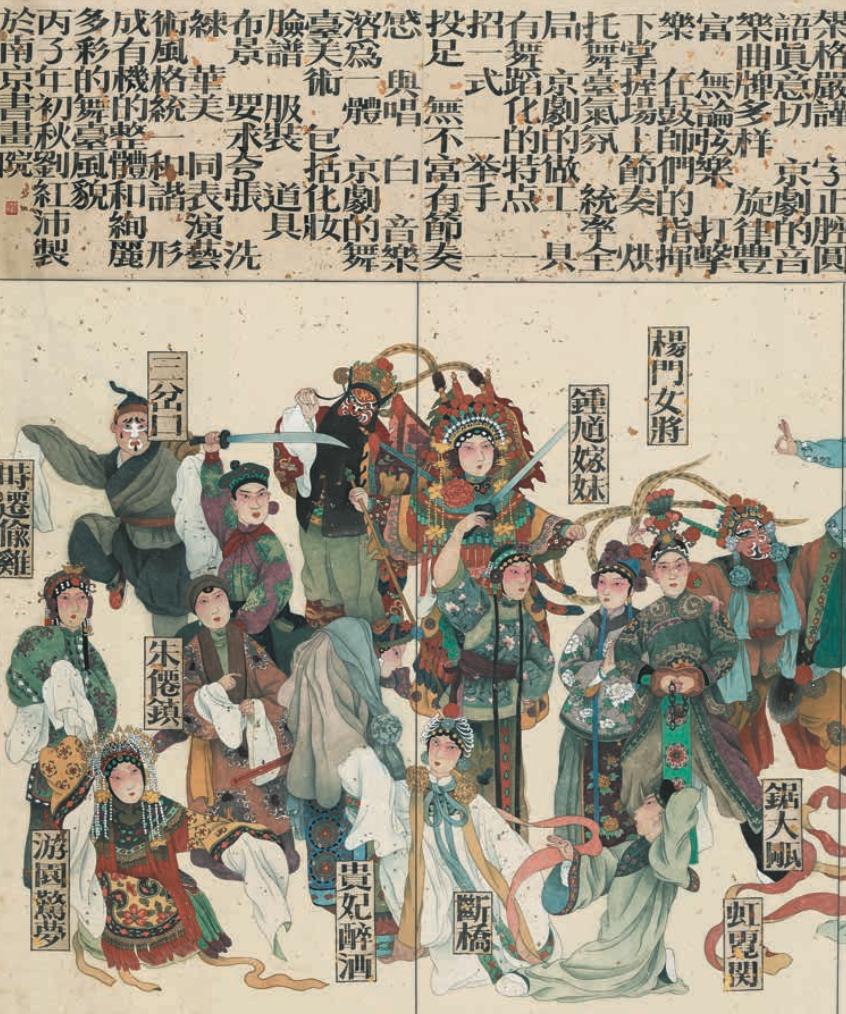 格嚴謹 字正腔圓
語眞意切 京劇的音
樂曲牌多样 旋律豊
富 無論弦樂 打擊
樂 在鼓師們的指揮
下掌握場上節奏 烘
托舞臺氣氛 統率全
局 京劇的做工 具
有舞蹈化的特点 一
招一式 一举手 一
投足 無不富有節奏
感 與唱 白 音樂
溶爲一體 京劇的舞
臺美術 包括化妝
臉譜 服裝 道具
布景 要求夸張 洗
練 華美 同表演藝
術風格統一和諧 形
成有機的整體和絢麗
多彩的舞臺風貌
丙子年初秋劉紅沛製
於南京書畫院
楊門女將
鍾馗嫁妹
三岔口
時遷偷雞
朱僊鎮
鋸大缸
虹霓関
斷橋
貴妃醉酒
游園驚夢